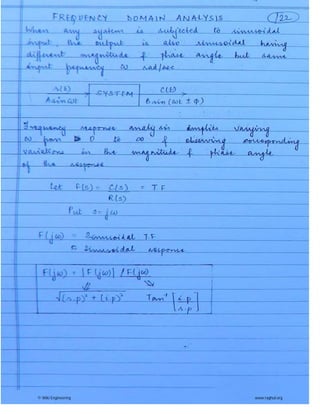 FREQUENCY DOMAIN ANALYSIS 122
When any system is subjected to sinusoidal
input, the output is also sinusoidal having
different magnitude & phase angle but same
input frequency ω rad/sec
r(t) → SYSTEM → C(t)
A sin ωt B sin (ωt ± Φ)
Frequency response analysis implies varying
ω from 0 to ∞ & observing corresponding
variations in the magnitude & phase angle
of the response.
Let F(s) = C(s)/R(s) = T.F
Put s = jω
F(jω) = Sinusoidal T.F
Sinusoidal response
F(jω) = |F(jω)| ∠F(jω)
√(r.p)² + (i.p)² Tan⁻¹ [i.p / r.p]
www.raghul.org